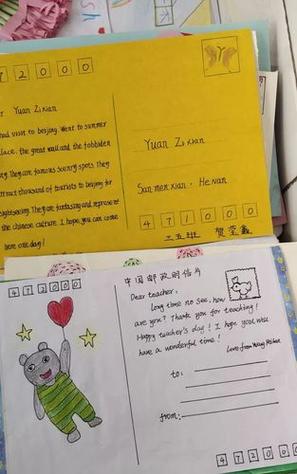 7 2 0 0 0
Yuan Zixian
had visit to beijing. Went to summer
lace, the great wall and the fobbiden
They are famous scenry spots. They
tract thousand of tourists to beijing for
ightseeing. They are fantastic and represent
the chinese culture. I hope you can come
here one day!
Yuan Zixian
Sanmenxian · HeNan
4 7 1 0 0 0
三五班
中国邮政明信片
4 7 2 0 0 0
Dear teacher:
Long time no see, how
are you? Thank you for teaching!
Happy teacher's day! I hope you will
have a wonderful time!
Love from Wang
to:
from:
4 7 2 0 0